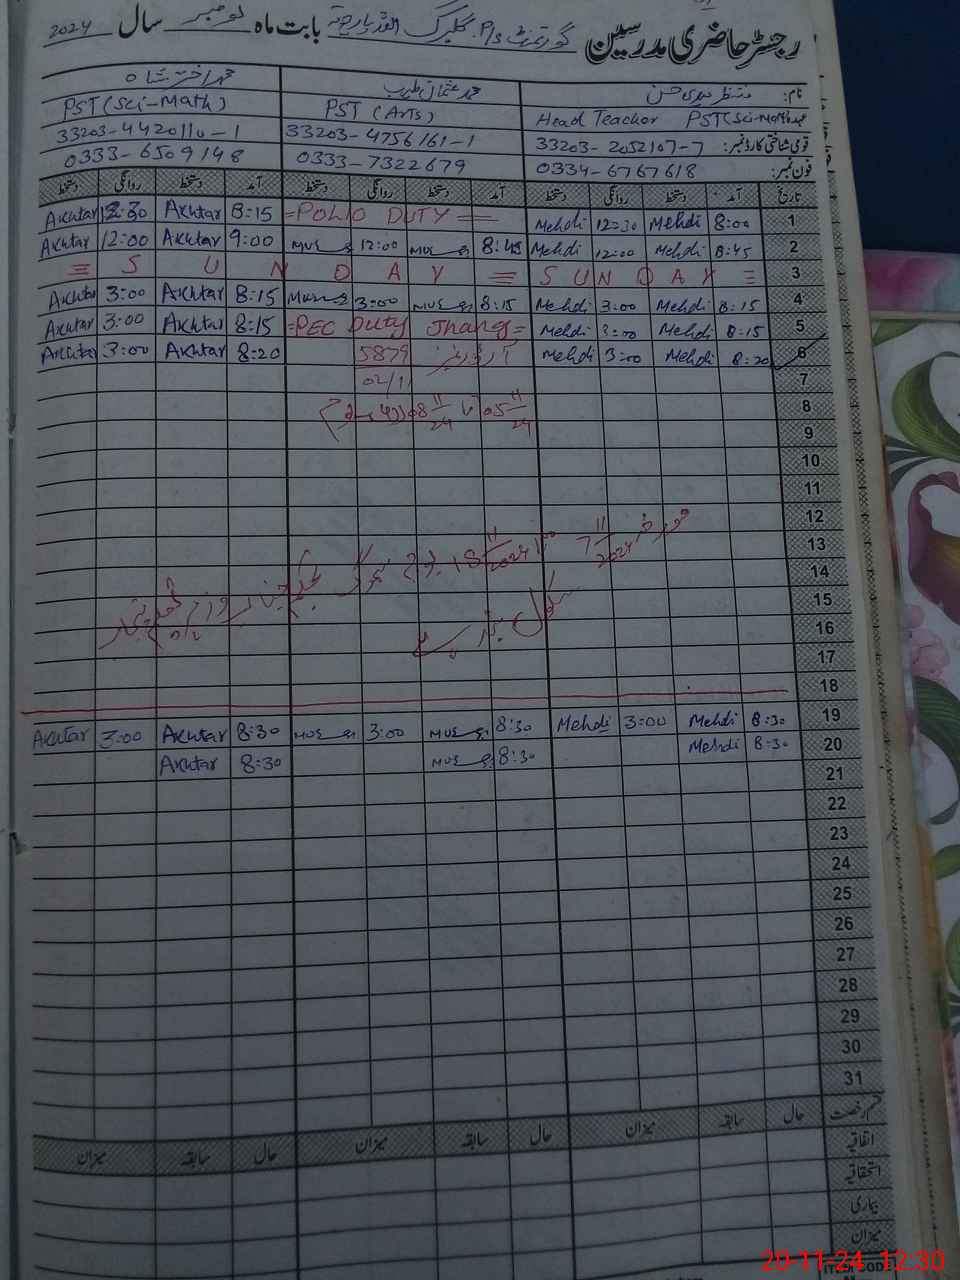 رجسٹر حاضری مدرسین گورنمنٹ P/S گلبرگ بابت ماہ نومبر سال 2024
نام: منتظر مہدی حسن محمد عثمان طیب محمد اختر شاہ
Head Teacher PST(Sci-Math) PST (Arts) PST (Sci-Math)
قومی شناختی کارڈ نمبر: 33203-2052107-7 33203-4756161-1 33203-4420110-1
فون نمبر: 0334-6767618 0333-7322679 0333-6509148
تاریخ آمد دستخط روانگی دستخط آمد دستخط روانگی دستخط آمد دستخط روانگی دستخط
1 8:00 Mehdi 12:30 Mehdi =POLIO DUTY= 8:15 Akhtar 12:30 Akhtar
2 8:45 Mehdi 12:00 Mehdi 8:45 12:00 9:00 Akhtar 12:00 Akhtar
3 SUNDAY = SUNDAY =
4 8:15 Mehdi 3:00 Mehdi 8:15 3:00 8:15 Akhtar 3:00 Akhtar
5 8:15 Mehdi 3:00 Mehdi =PEC Duty Jhang= 8:15 Akhtar 3:00 Akhtar
6 8:20 Mehdi 3:00 Mehdi آرڈر نمبر 5879 8:20 Akhtar 3:00 Akhtar
7 02/11
8 05 11/24 تا 08 11/24
9
10
11
12
13 مورخہ 7 11/2024 تا 18 11/2024
14
15
16 سکول بند رہے
17
18
19 8:30 Mehdi 3:00 Mehdi 8:30 3:00 8:30 Akhtar 3:00 Akhtar
20 8:30 Mehdi 8:30 8:30 Akhtar
21
22
23
24
25
26
27
28
29
30
31
قسم رخصت حال سابقہ میزان حال سابقہ میزان حال سابقہ میزان
اتفاقیہ
استحقاقیہ
بیماری
میزان
20-11-24 12:30